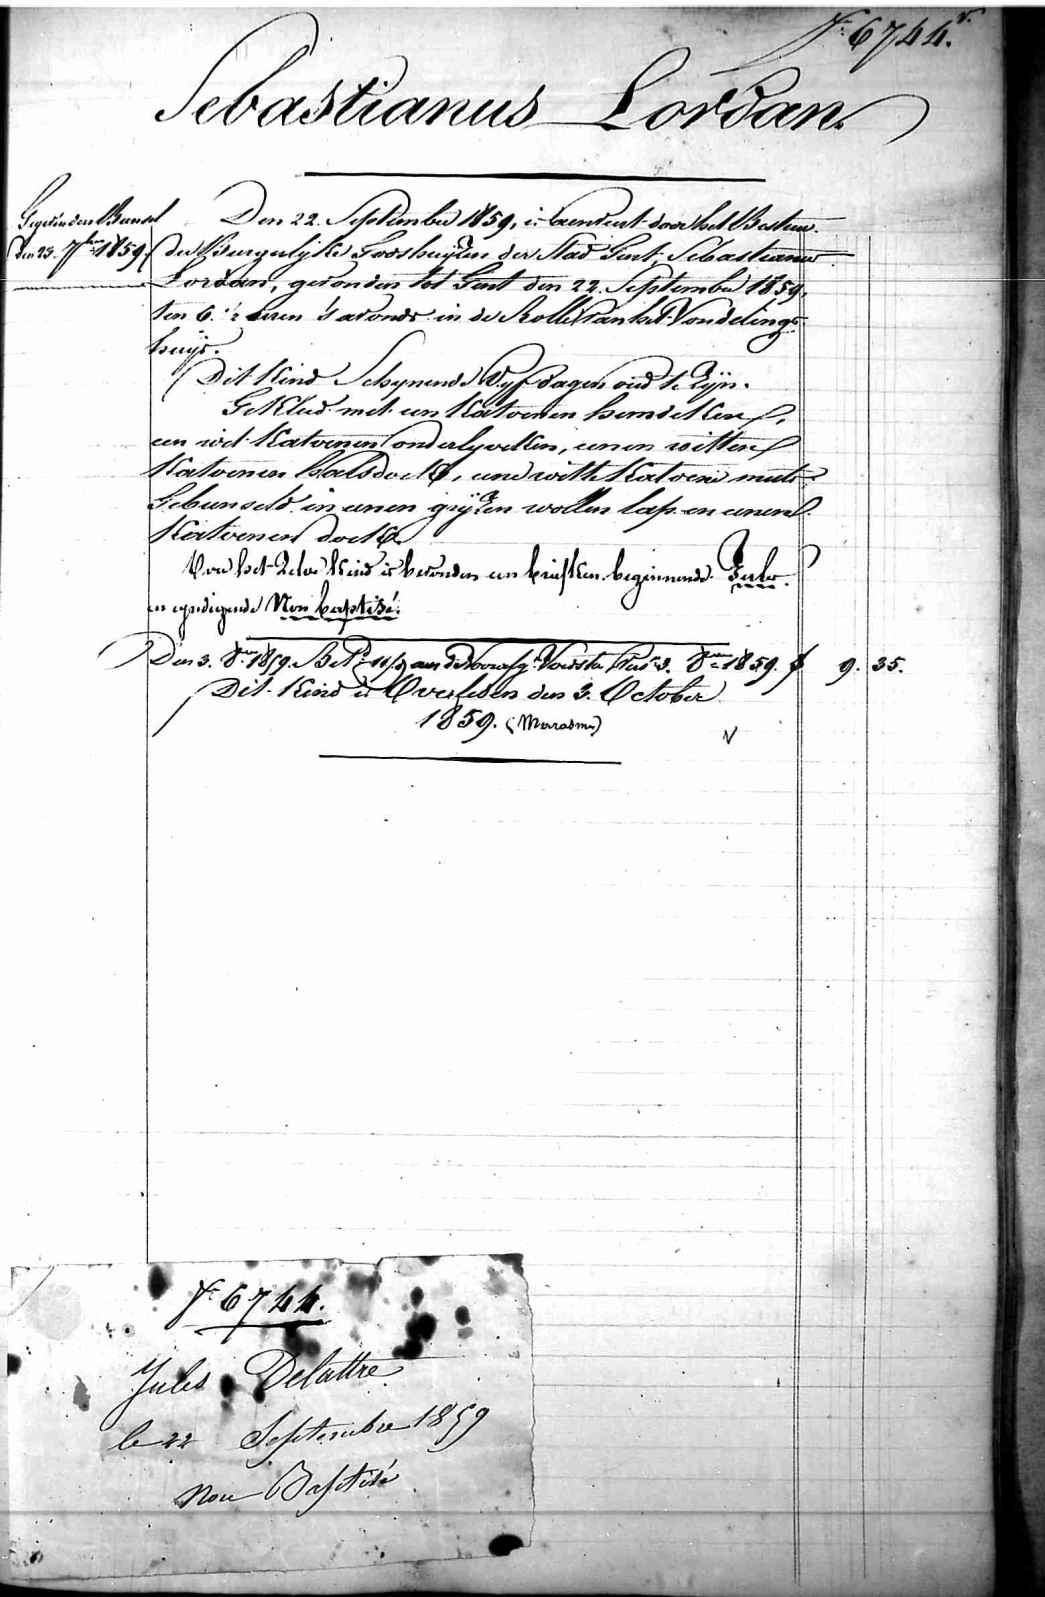 N° 6744.
Sebastianus Lordan.
Den 22. September 1859, is besteed door het Bestuur
der Burgerlijke Godshuyzen der Stad Gent, Sebastianus
Lordan, gevonden tot Gent den 22. September 1859,
ten 6. ½ uren 's avonds in de Rolle van het Vondeling-
huijs.
Dit Kind Schynende Vyf dagen oud te Zyn.
Gekleed met een Katoenen hemdeken,
een wit Katoenen onderlyveken, eenen witten
Katoenen halsdoek, eene witte Katoene muts
Gebunseld in eenen gryzen wollen lap en eenen
Katoenen doek.
Van het Zelve Kind is bevonden een briefken beginnende Jules
en eyndigende Non baptisé.
Den 3. 8bre 1859. 3. 8bre 1859. f 9. 35.
Dit Kind is Overleden den 3. October
1859. (Marasme)
den 23. 7bre 1859
N° 6744.
Jules Delattre
le 22 Septembre 1859
non Baptisé